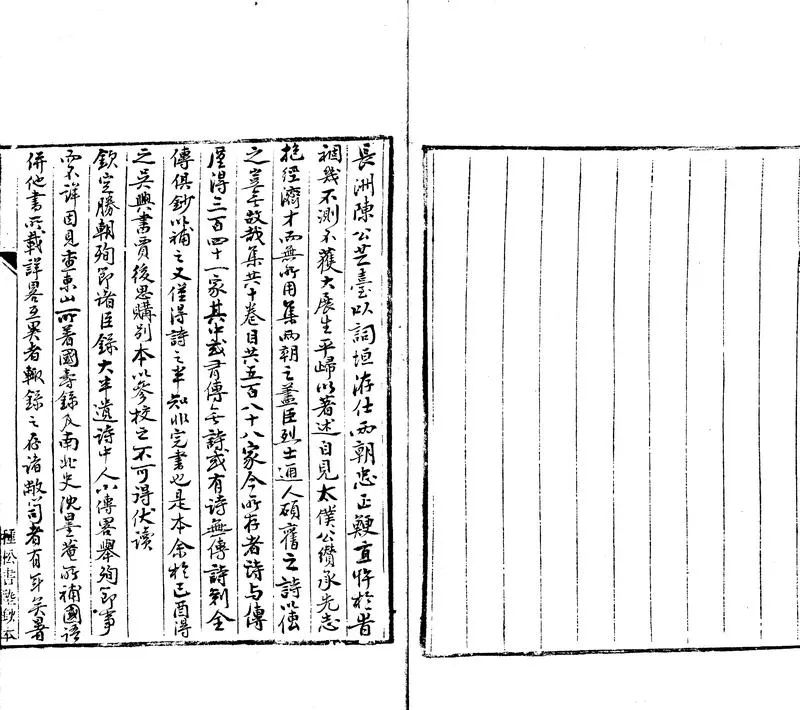 長洲陳公芷臺以詞垣洊仕兩朝忠正鯁直忤於時
禍幾不測不獲大展生平歸以著述自見太僕公纘承先志
抱經濟才而無所用集兩朝之藎臣烈士通人碩舊之詩以
之豈無故哉集共十卷目共五百八十八家今所存者詩与傳
僅得三百四十一家其中或有傳無詩或有詩無傳詩刻全
傳俱鈔以補之又僅得詩之半知非完書也是本余於己酉得
之吳興書賈後思購別本以參校之不可得伏讀
欽定勝朝殉節諸臣錄大半遺詩中人小傳畧舉殉節事
而不詳因見查東山所著國壽錄及南北史沈墨菴所補國語
併他書所載詳畧互異者輙錄之存諸敝笥者有年矣暑
種松書塾鈔本